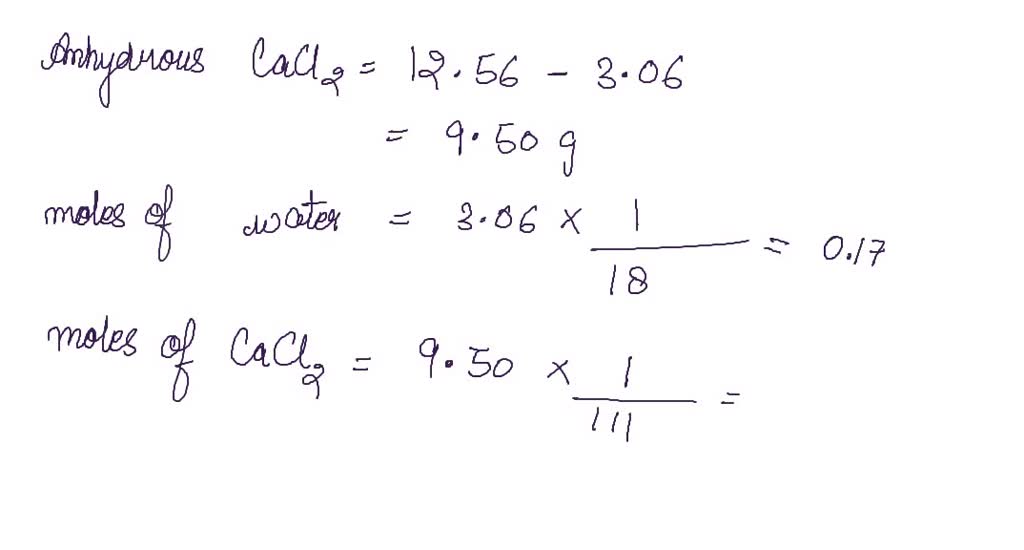 Anhydrous CaCl₂ = 12.56 - 3.06
= 9.50 g
moles of water = 3.06 × 1/18 = 0.17
moles of CaCl₂ = 9.50 × 1/111 =